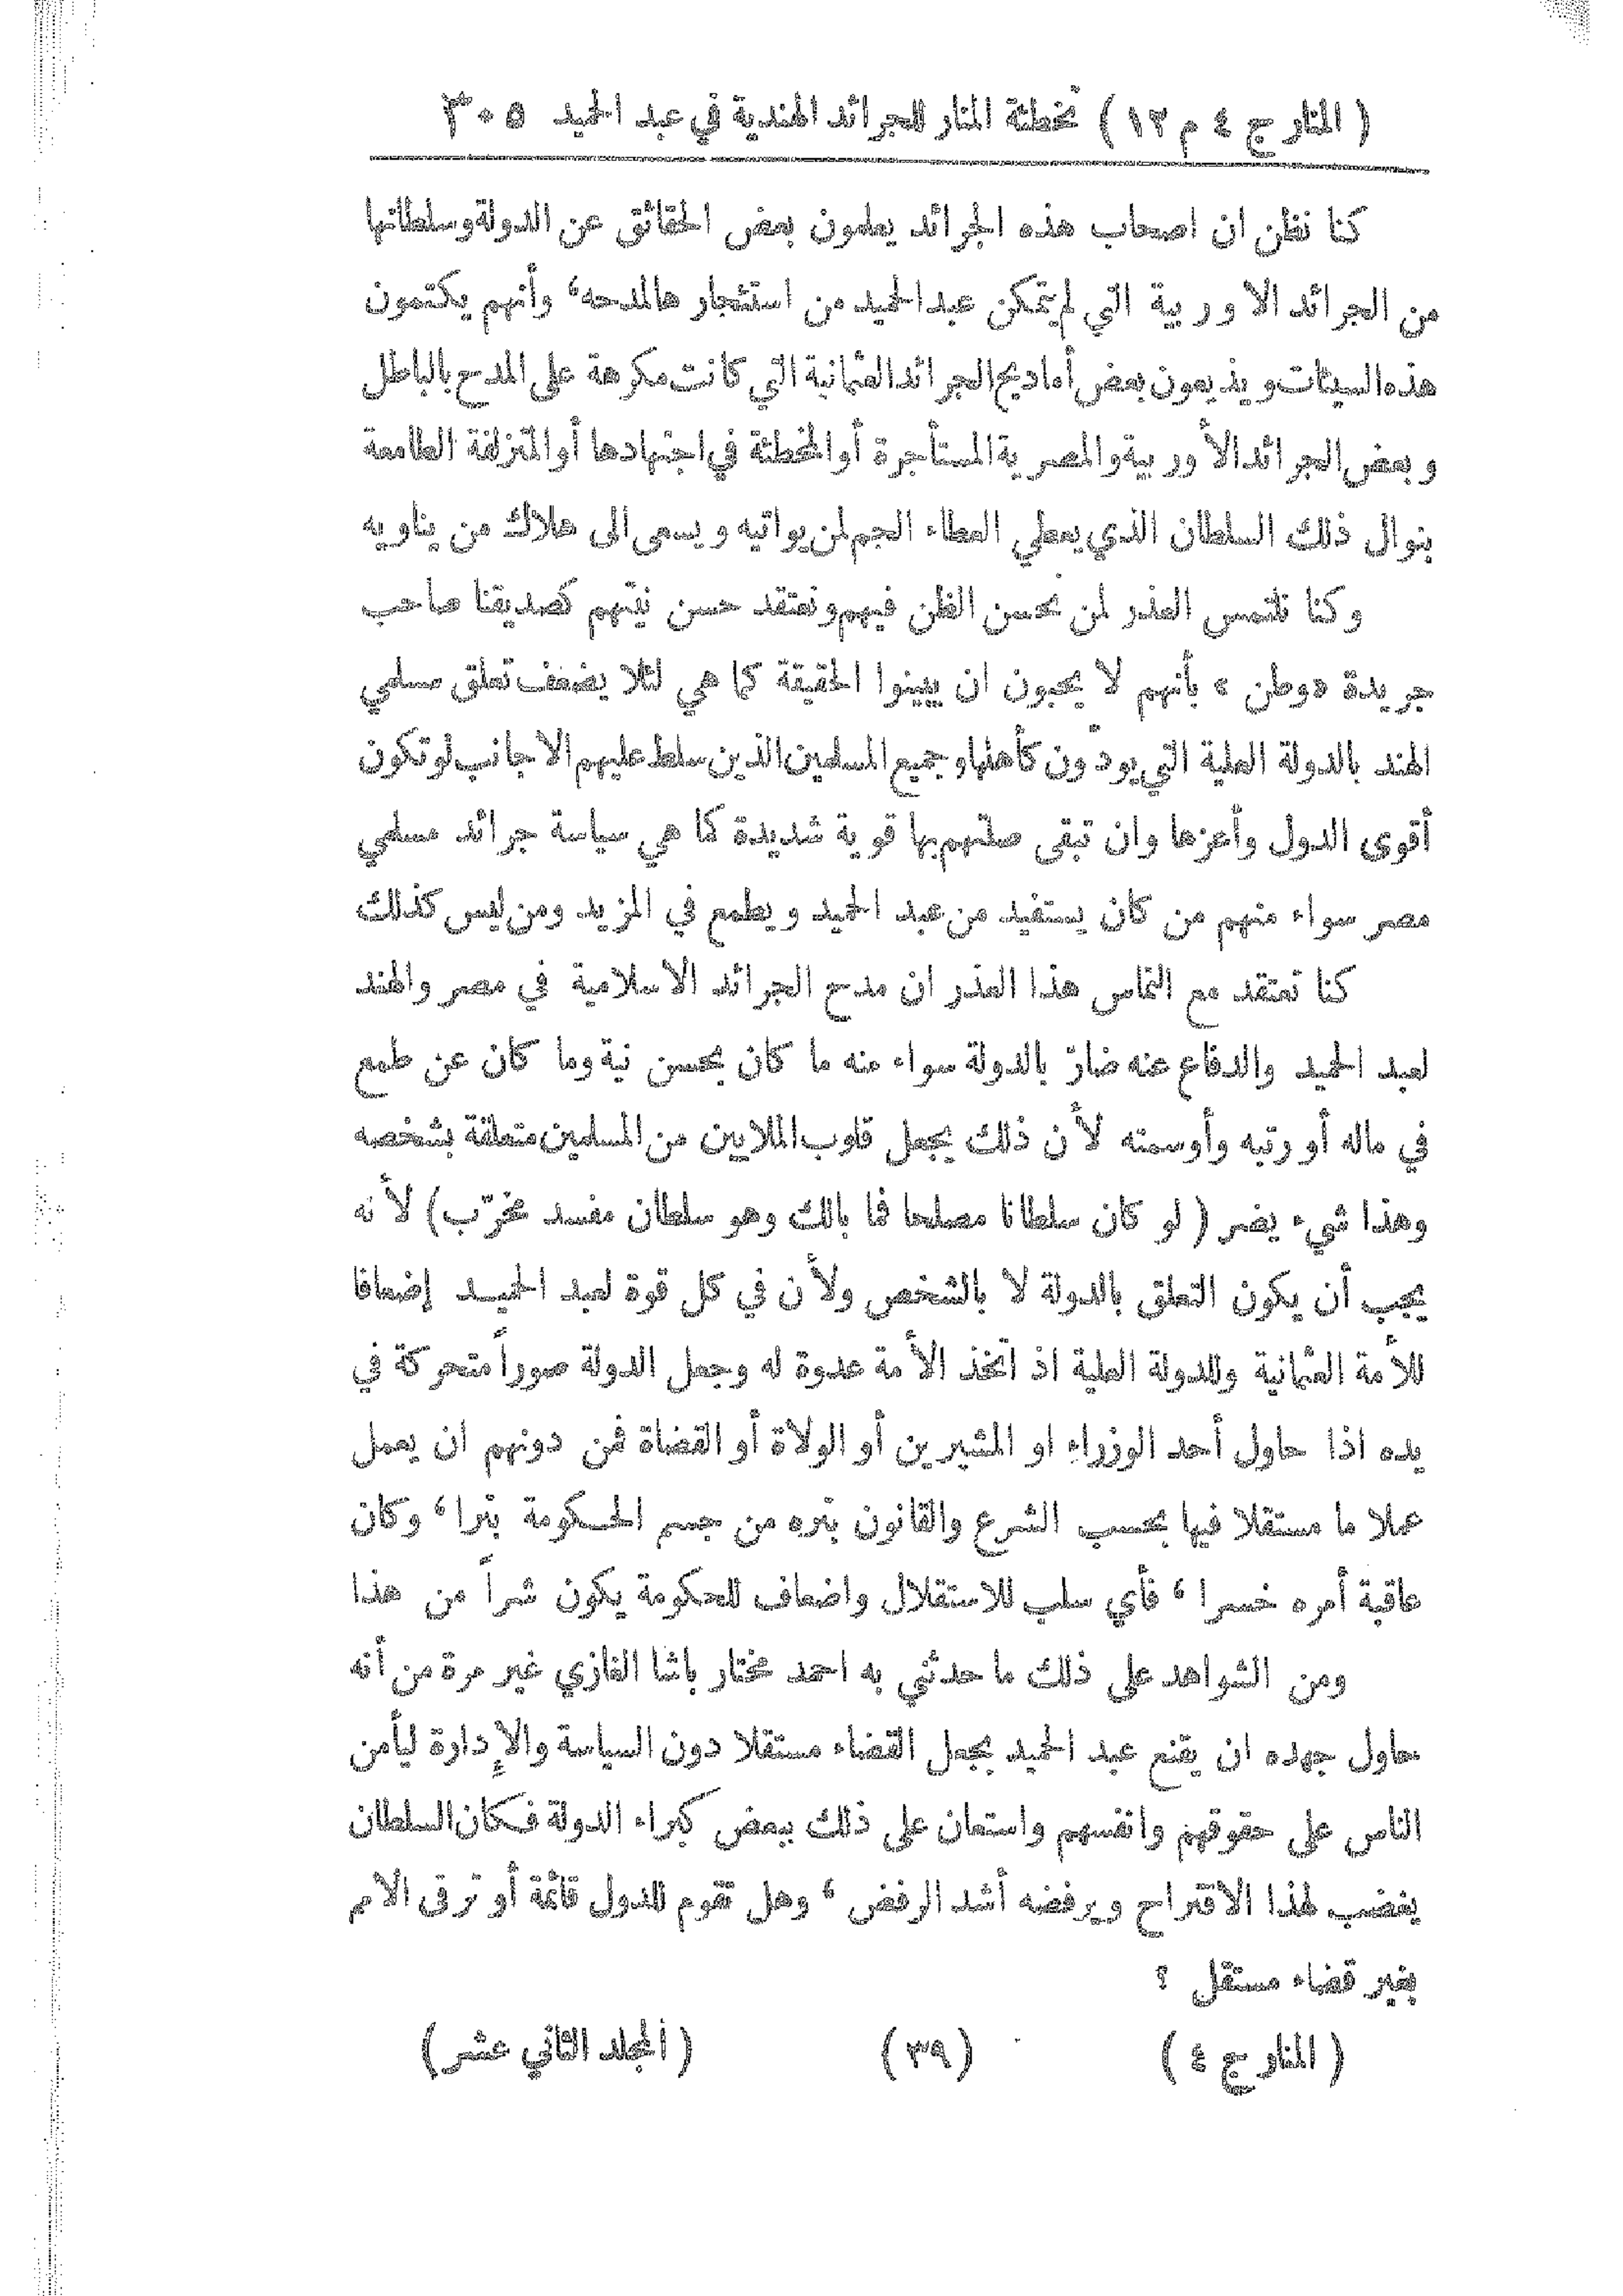 ( المنار ج ٤ م ١٢ ) تخطئة المنار للجرائد الهندية في عبد الحميد ٣٠٥
كنا نظن ان اصحاب هذه الجرائد يعلمون بعض الحقائق عن الدولة وسلطانها
من الجرائد الاوربية التي لم يتمكن عبد الحميد من استئجارها لمدحه ، وأنهم يكتمون
هذه السيئات ويذيعون بعض أماديح الجرائد العثمانية التي كانت مكرهة على المدح بالباطل
وبعض الجرائد الأوربية والمصرية المستأجرة أو المخطئة في اجتهادها أو المتزلفة الطامعة
بنوال ذلك السلطان الذي يعطي العطاء الجم لمن يواتيه ويسعى الى هلاك من يناويه
وكنا نلتمس العذر لمن نحسن الظن فيهم ونعتقد حسن نيتهم كصديقنا صاحب
جريدة «وطن » بأنهم لا يحبون ان يبينوا الحقيقة كما هي لئلا يضعف تعلق مسلمي
الهند بالدولة العلية التي يودّون كأهلها وجميع المسلمين الذين سلط عليهم الاجانب لو تكون
أقوى الدول وأعزها وان تبقى صلتهم بها قوية شديدة كما هي سياسة جرائد مسلمي
مصر سواء منهم من كان يستفيد من عبد الحميد ويطمع في المزيد ومن ليس كذلك
كنا نعتقد مع التماس هذا العذر ان مدح الجرائد الاسلامية في مصر والهند
لعبد الحميد والدفاع عنه ضارّ بالدولة سواء منه ما كان بحسن نية وما كان عن طمع
في ماله أو رتبه وأوسمته لأن ذلك يجعل قلوب الملايين من المسلمين متعلقة بشخصه
وهذا شيء يضر ( لو كان سلطانا مصلحا فما بالك وهو سلطان مفسد مخرّب) لأنه
يجب أن يكون التعلق بالدولة لا بالشخص ولأن في كل قوة لعبد الحميد إضعافا
للأمة العثمانية وللدولة العلية اذ اتخذ الأمة عدوة له وجعل الدولة صوراً متحركة في
يده اذا حاول أحد الوزراء او المشيرين أو الولاة أو القضاة فمن دونهم ان يعمل
عملا ما مستقلا فيها بحسب الشرع والقانون بتره من جسم الحكومة بترا ، وكان
عاقبة أمره خسرا ، فأي سلب للاستقلال واضعاف للحكومة يكون شراً من هذا
ومن الشواهد على ذلك ما حدثني به احمد مختار باشا الغازي غير مرة من أنه
حاول جهده ان يقنع عبد الحميد بجعل القضاء مستقلا دون السياسة والإدارة ليأمن
الناس على حقوقهم وانفسهم واستعان على ذلك ببعض كبراء الدولة فكان السلطان
يغضب لهذا الاقتراح ويرفضه أشد الرفض ، وهل تقوم للدول قائمة أو ترقى الامم
بغير قضاء مستقل ؟
( المنار ج ٤ ) (٣٩) ( المجلد الثاني عشر)